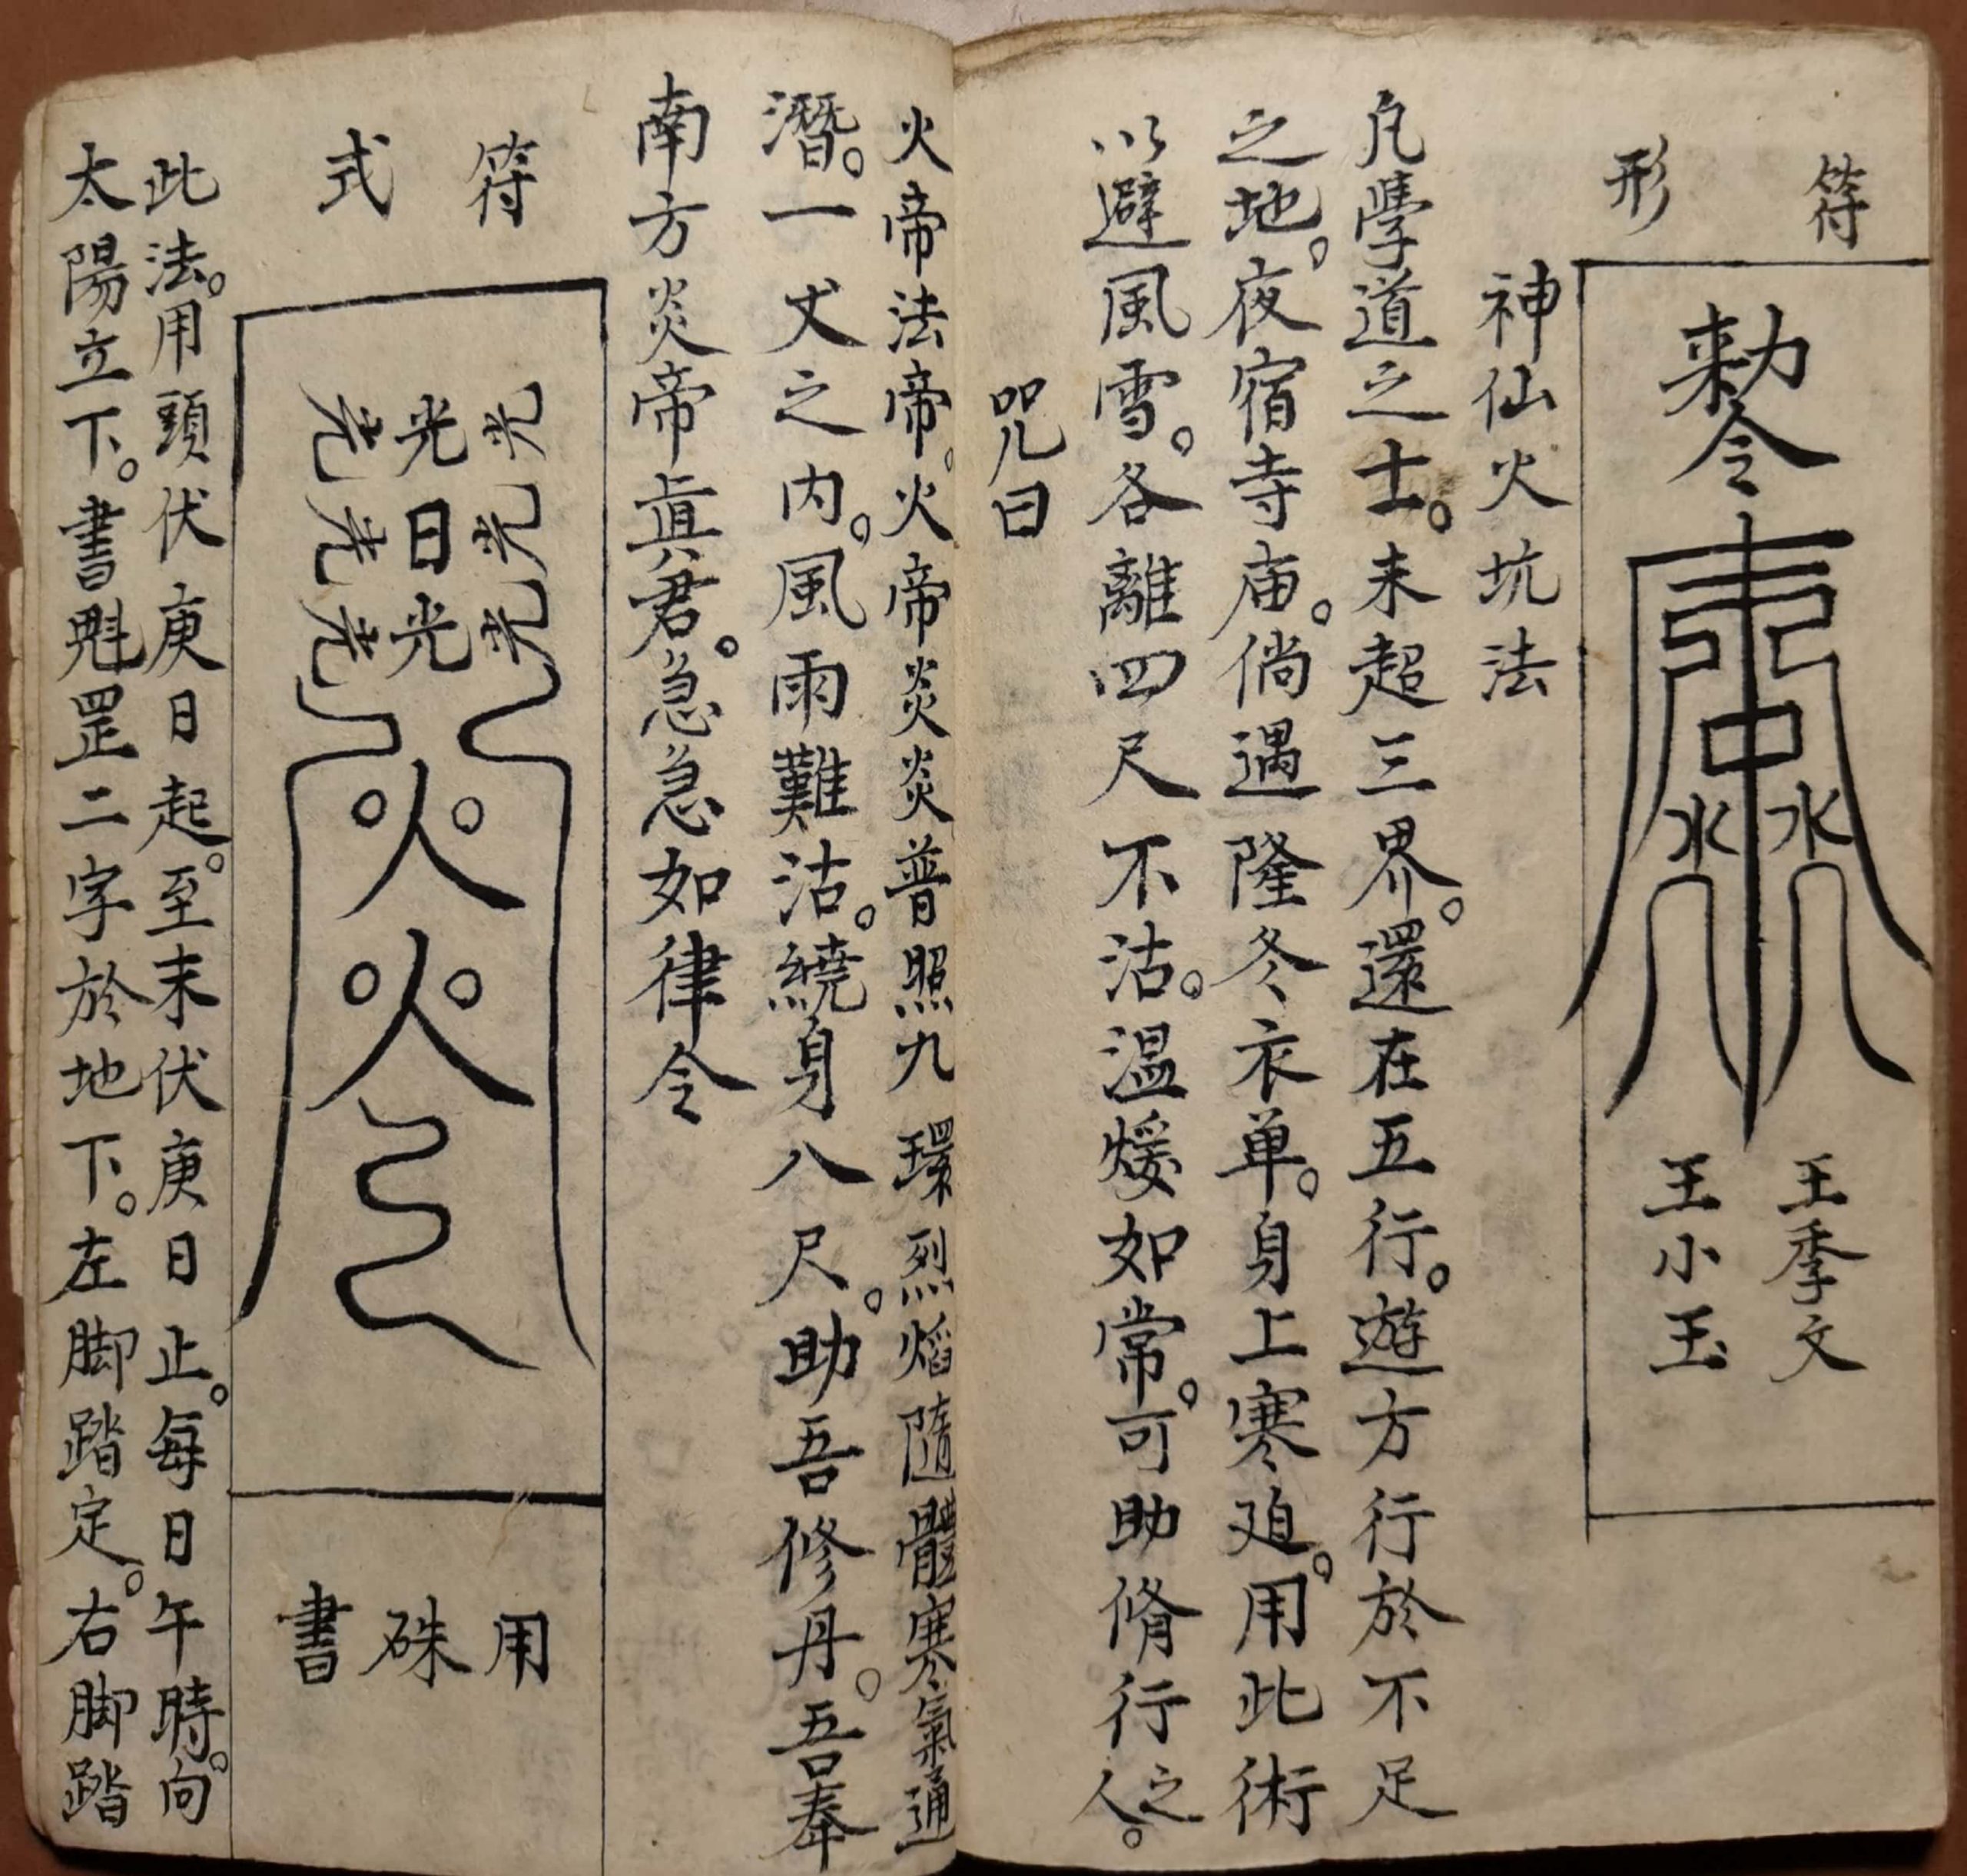 符形
勅令
中
水水
王季文
王小玉
神仙火坑法
凡學道之士。未超三界。還在五行。遊方行於不足
之地。夜宿寺庙。倘遇隆冬衣单。身上寒廹。用此術
以避風雪。各離四尺不沾。温煖如常。可助脩行之人。
咒曰
火帝法帝。火帝炎炎普照九環烈熖隨體寒氣通
潛。一丈之内。風雨難沾。繞身八尺。助吾修丹。吾奉
南方炎帝眞君。急急如律令
符式
光光光
光日光
光光光
火
火
用硃書
此法。用頭伏庚日起。至末伏庚日止。每日午時。向
太陽立下。書魁罡二字於地下。左脚踏定。右脚踏